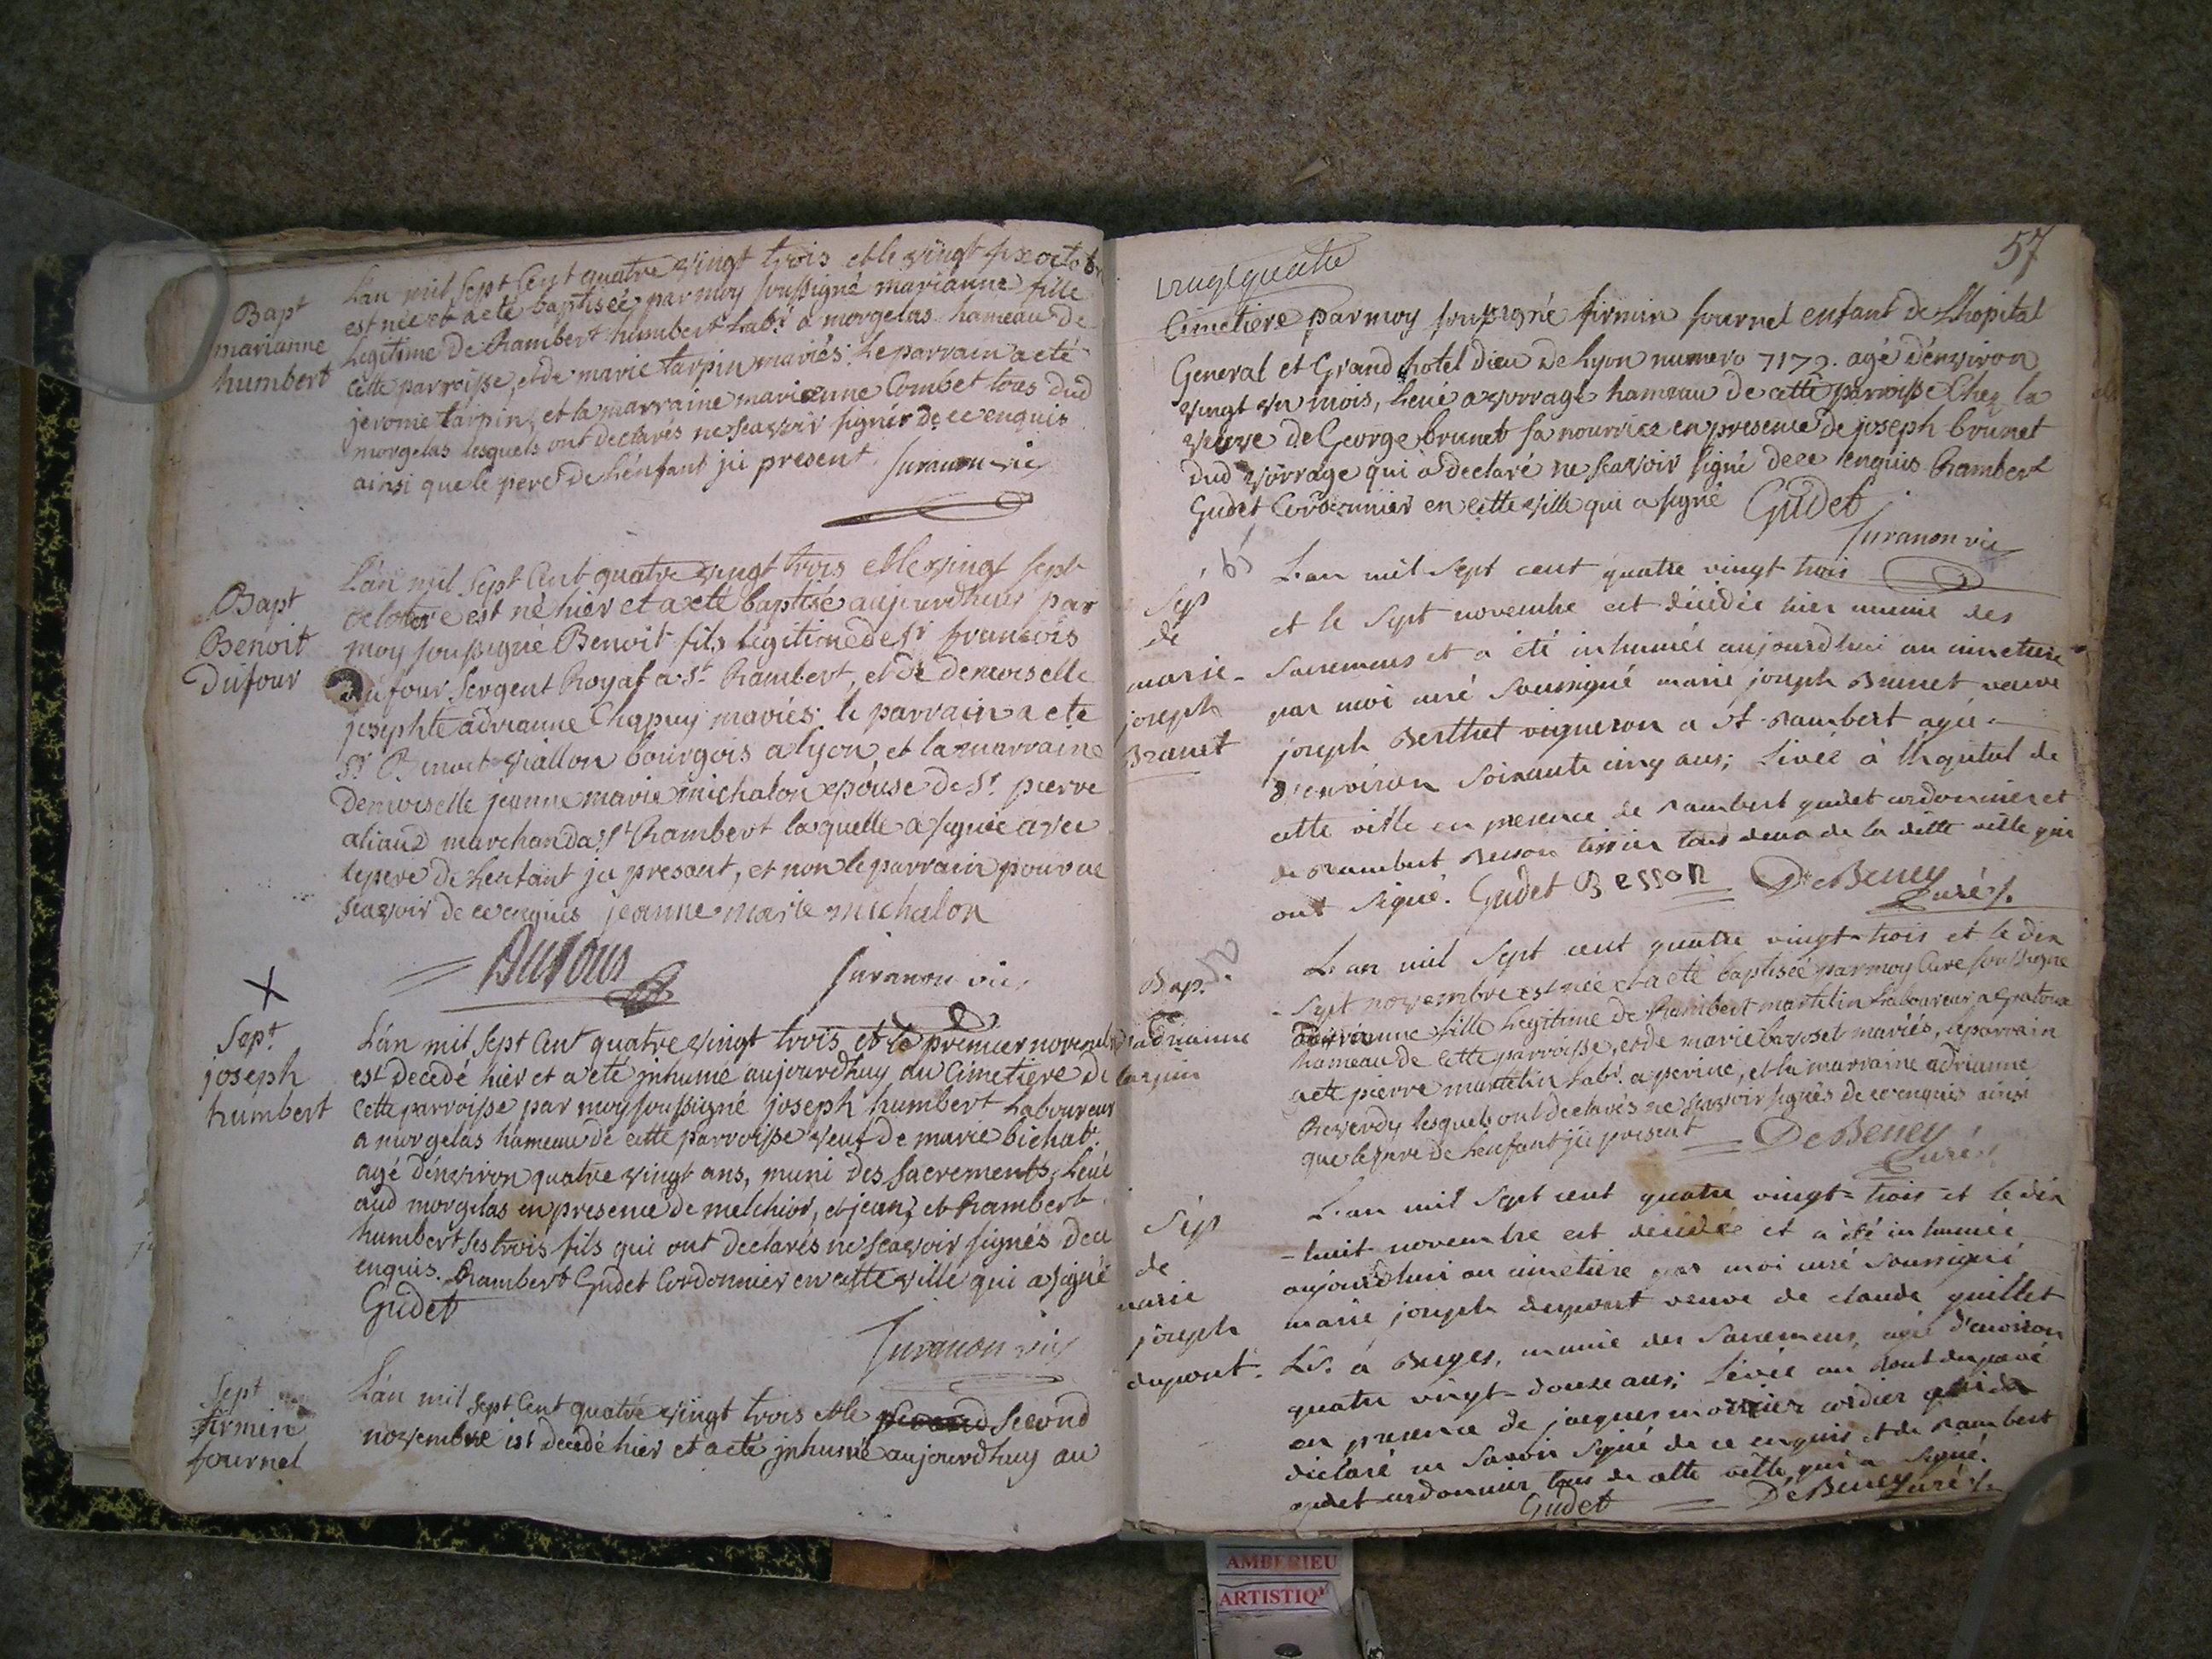 Bapt
marianne
humbert
Lán mil sept Cent quatre vingt trois et le vingt six octobre
est née et a eté baptisée par moy soussigné marianne fille
Legitime de Rambert humbert Labr. a morgelas hameau de
cette parroisse, et de marie tarpin mariés. Le parrain a eté
jerome tarpin, et la marraine marianne Combet tous dud
morgelas lesquels ont declarés ne scavoir signér de ce enquis
ainsi que le pere de Lénfant ici present. juranon vic
Bapt
Benoit
Dufour
Lán mil sept Cent quatre vingt trois et le vingt sept
octobre est né hier et a eté baptisé aujourdhuy par
moy soussigné Benoit fils legitime de sr francois
Dufour Sergent Royal a St. Rambert, et de demoiselle
josephte adrianne Chapuy mariés; le parrain a eté
sr Benoit viallon bourgois a lyon, et la marraine
Demoiselle jeanne marie michalon epouse de Sr. pierre
aliaud marchand a St Rambert laquelle a signée avec
le pere de Lenfant ici present, et non le parrain pour ne
scavoir de ce enquis jeanne marie michalon
Dufour juranon vic
Sept.
joseph
humbert
Lán mil sept Cent quatre vingt trois et le premier novembre
est decedé hier et a eté inhumé aujourdhuy au Cimetiere de
Cette parroisse par moy soussigné joseph humbert Laboureur
a morgelas hameau de cette parroisse veuf de marie bichat.
agé dénviron quatre vingt ans, muni des Sacrements, Levé
aud morgelas en presence de melchior, et jean, et Rambert
humbert ses trois fils qui ont declarés ne scavoir signés de ce
enquis. Rambert Gudet Cordonnier en cette ville qui a signé
Gudet
juranon vic
Sept
firmin
fournel
Lán mil sept Cent quatre vingt trois et le second
novembre est decedé hier et a eté inhumé aujourdhuy au
57
vingt quatre
Cimetiere par moy soussigné firmin fournel enfant de Lhopital
General et Grand hotel Dieu de Lyon numero 7172. agé dénviron
vingt un mois, Levé a vorrage hameau de cette parroisse Chez la
veuve de George brunet sa nourrice en presence de joseph brunet
dud vorrage qui a declaré ne scavoir signé de ce enquis Rambert
Gudet Cordonnier en cette ville qui a signé Gudet
juranon vic
65
Sép
de
marie
joseph
Brunet
L'an mil sept cent quatre vingt trois
et le sept novembre est décédée hier munie des
sacremens et a été inhumée aujourdhui au cimetiere
par moi curé soussigné marie joseph Brunet veuve
joseph Berthet vigneron a st. Rambert agée
d'environ soixante cinq ans; Levée à l'hopital de
cette ville en presence de rambert gudet cordonnier et
de Rambert Besson tissier tous deux de la ditte ville qui
ont signé. Gudet Besson DeBeney
Curé
52
Bap.
adrianne
L'an mil sept cent quatre vingt-trois et le dix
sept novembre est née et a eté baptisée par moy Curé soussigné
adrianne fille Legitime de Rambert martelin Laboureur a
hameau de cette parroisse, et de marie mariés, le parrain
a eté pierre martelin Labr. a perine, et la marraine adrianne
Reverdy lesquels ont declarés ne scavoir signés de ce enquis ainsi
que le pere de Lenfant ici present DeBeney
Curé
Sép
de
marie
joseph
dupont
L'an mil sept cent quatre vingt-trois et le dix
-huit novembre est décédée et a été inhumée
aujourdhui au cimetiere par moi curé soussigné
marie joseph dupont veuve de claude guillet
a Buges, munie des sacremens, agée d'environ
quatre vingt-douze ans; levée au bout du pavé
en presence de jacques cordier qui a
déclaré ne savoir signé de ce enquis et de rambert
gudet cordonnier tous de cette ville qui a signé.
Gudet DeBeney Curé
AMBERIEU
ARTISTIQ